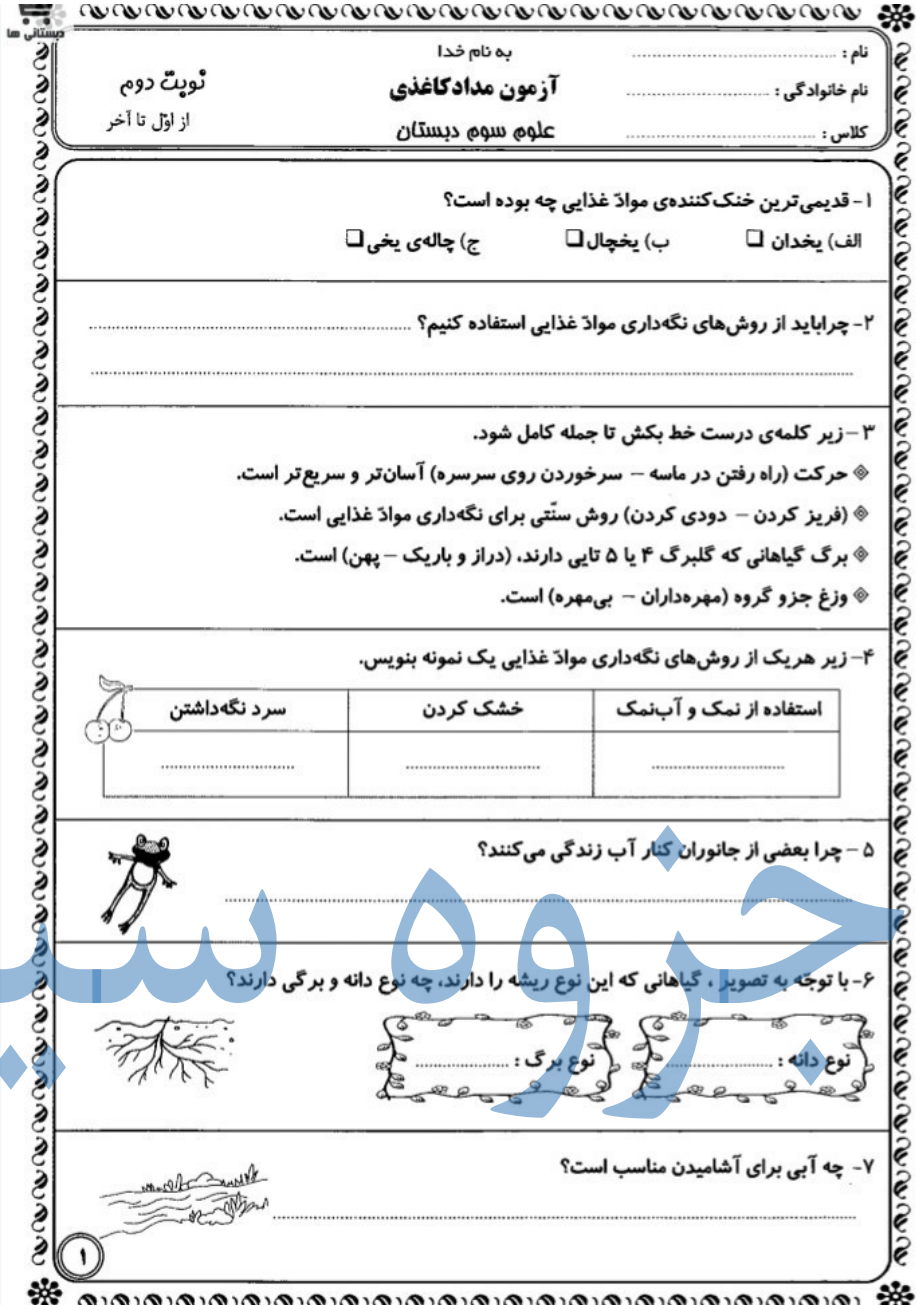 دبستانی ها
نام : ........................
به نام خدا
نام خانوادگی : ........................
آزمون مدادکاغذی
نوبت دوم
کلاس : ........................
علوم سوم دبستان
از اوّل تا آخر
۱- قدیمی‌ترین خنک‌کننده‌ی موادّ غذایی چه بوده است؟
الف) یخدان ❑ ب) یخچال ❑ ج) چاله‌ی یخی ❑
۲- چراباید از روش‌های نگه‌داری موادّ غذایی استفاده کنیم؟ ........................
........................
۳- زیر کلمه‌ی درست خط بکش تا جمله کامل شود.
◈ حرکت (راه رفتن در ماسه – سرخوردن روی سرسره) آسان‌تر و سریع‌تر است.
◈ (فریز کردن – دودی کردن) روش سنّتی برای نگه‌داری موادّ غذایی است.
◈ برگ گیاهانی که گلبرگ ۴ یا ۵ تایی دارند، (دراز و باریک – پهن) است.
◈ وزغ جزو گروه (مهره‌داران – بی‌مهره) است.
۴- زیر هریک از روش‌های نگه‌داری موادّ غذایی یک نمونه بنویس.
استفاده از نمک و آب‌نمک خشک کردن سرد نگه‌داشتن
........................ ........................ ........................
۵- چرا بعضی از جانوران کنار آب زندگی می‌کنند؟
........................
۶- با توجّه به تصویر ، گیاهانی که این نوع ریشه را دارند، چه نوع دانه و برگی دارند؟
نوع دانه : ........................ نوع برگ : ........................
۷- چه آبی برای آشامیدن مناسب است؟
........................
۱
جزوه سی